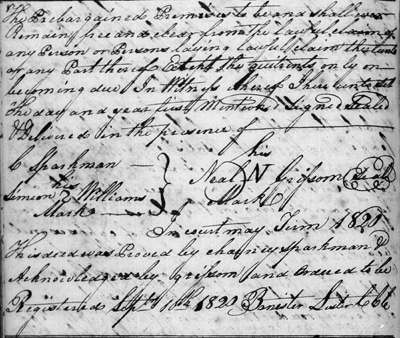 The Prebargained Premises to be and shall ever
Remain free and clear from the lawful claim of
any Person or Persons laying lawful claim thereunto
or any Part thereof Except the quitrents only on
becoming due In Witness whereof I have hereunto set
The day and year first Mentioned Signed Sealed
& Delivered in the presence of
C Sparkman his
Simeon his Williams Neal N Grissom Seal
Mark Mark
In court may Term 1820
This deed was Proved by chauncy Sparkman &
Acknowledged by Grissom and Ordered to be
Registered Sept 10th 1820 Banister Lister